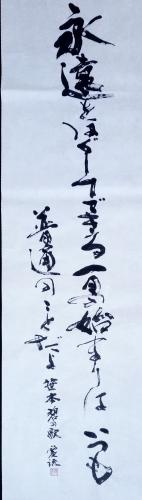 永遠をほぐしてできる一男の始まりはいつも
普通のことだよ 笹本碧の歌